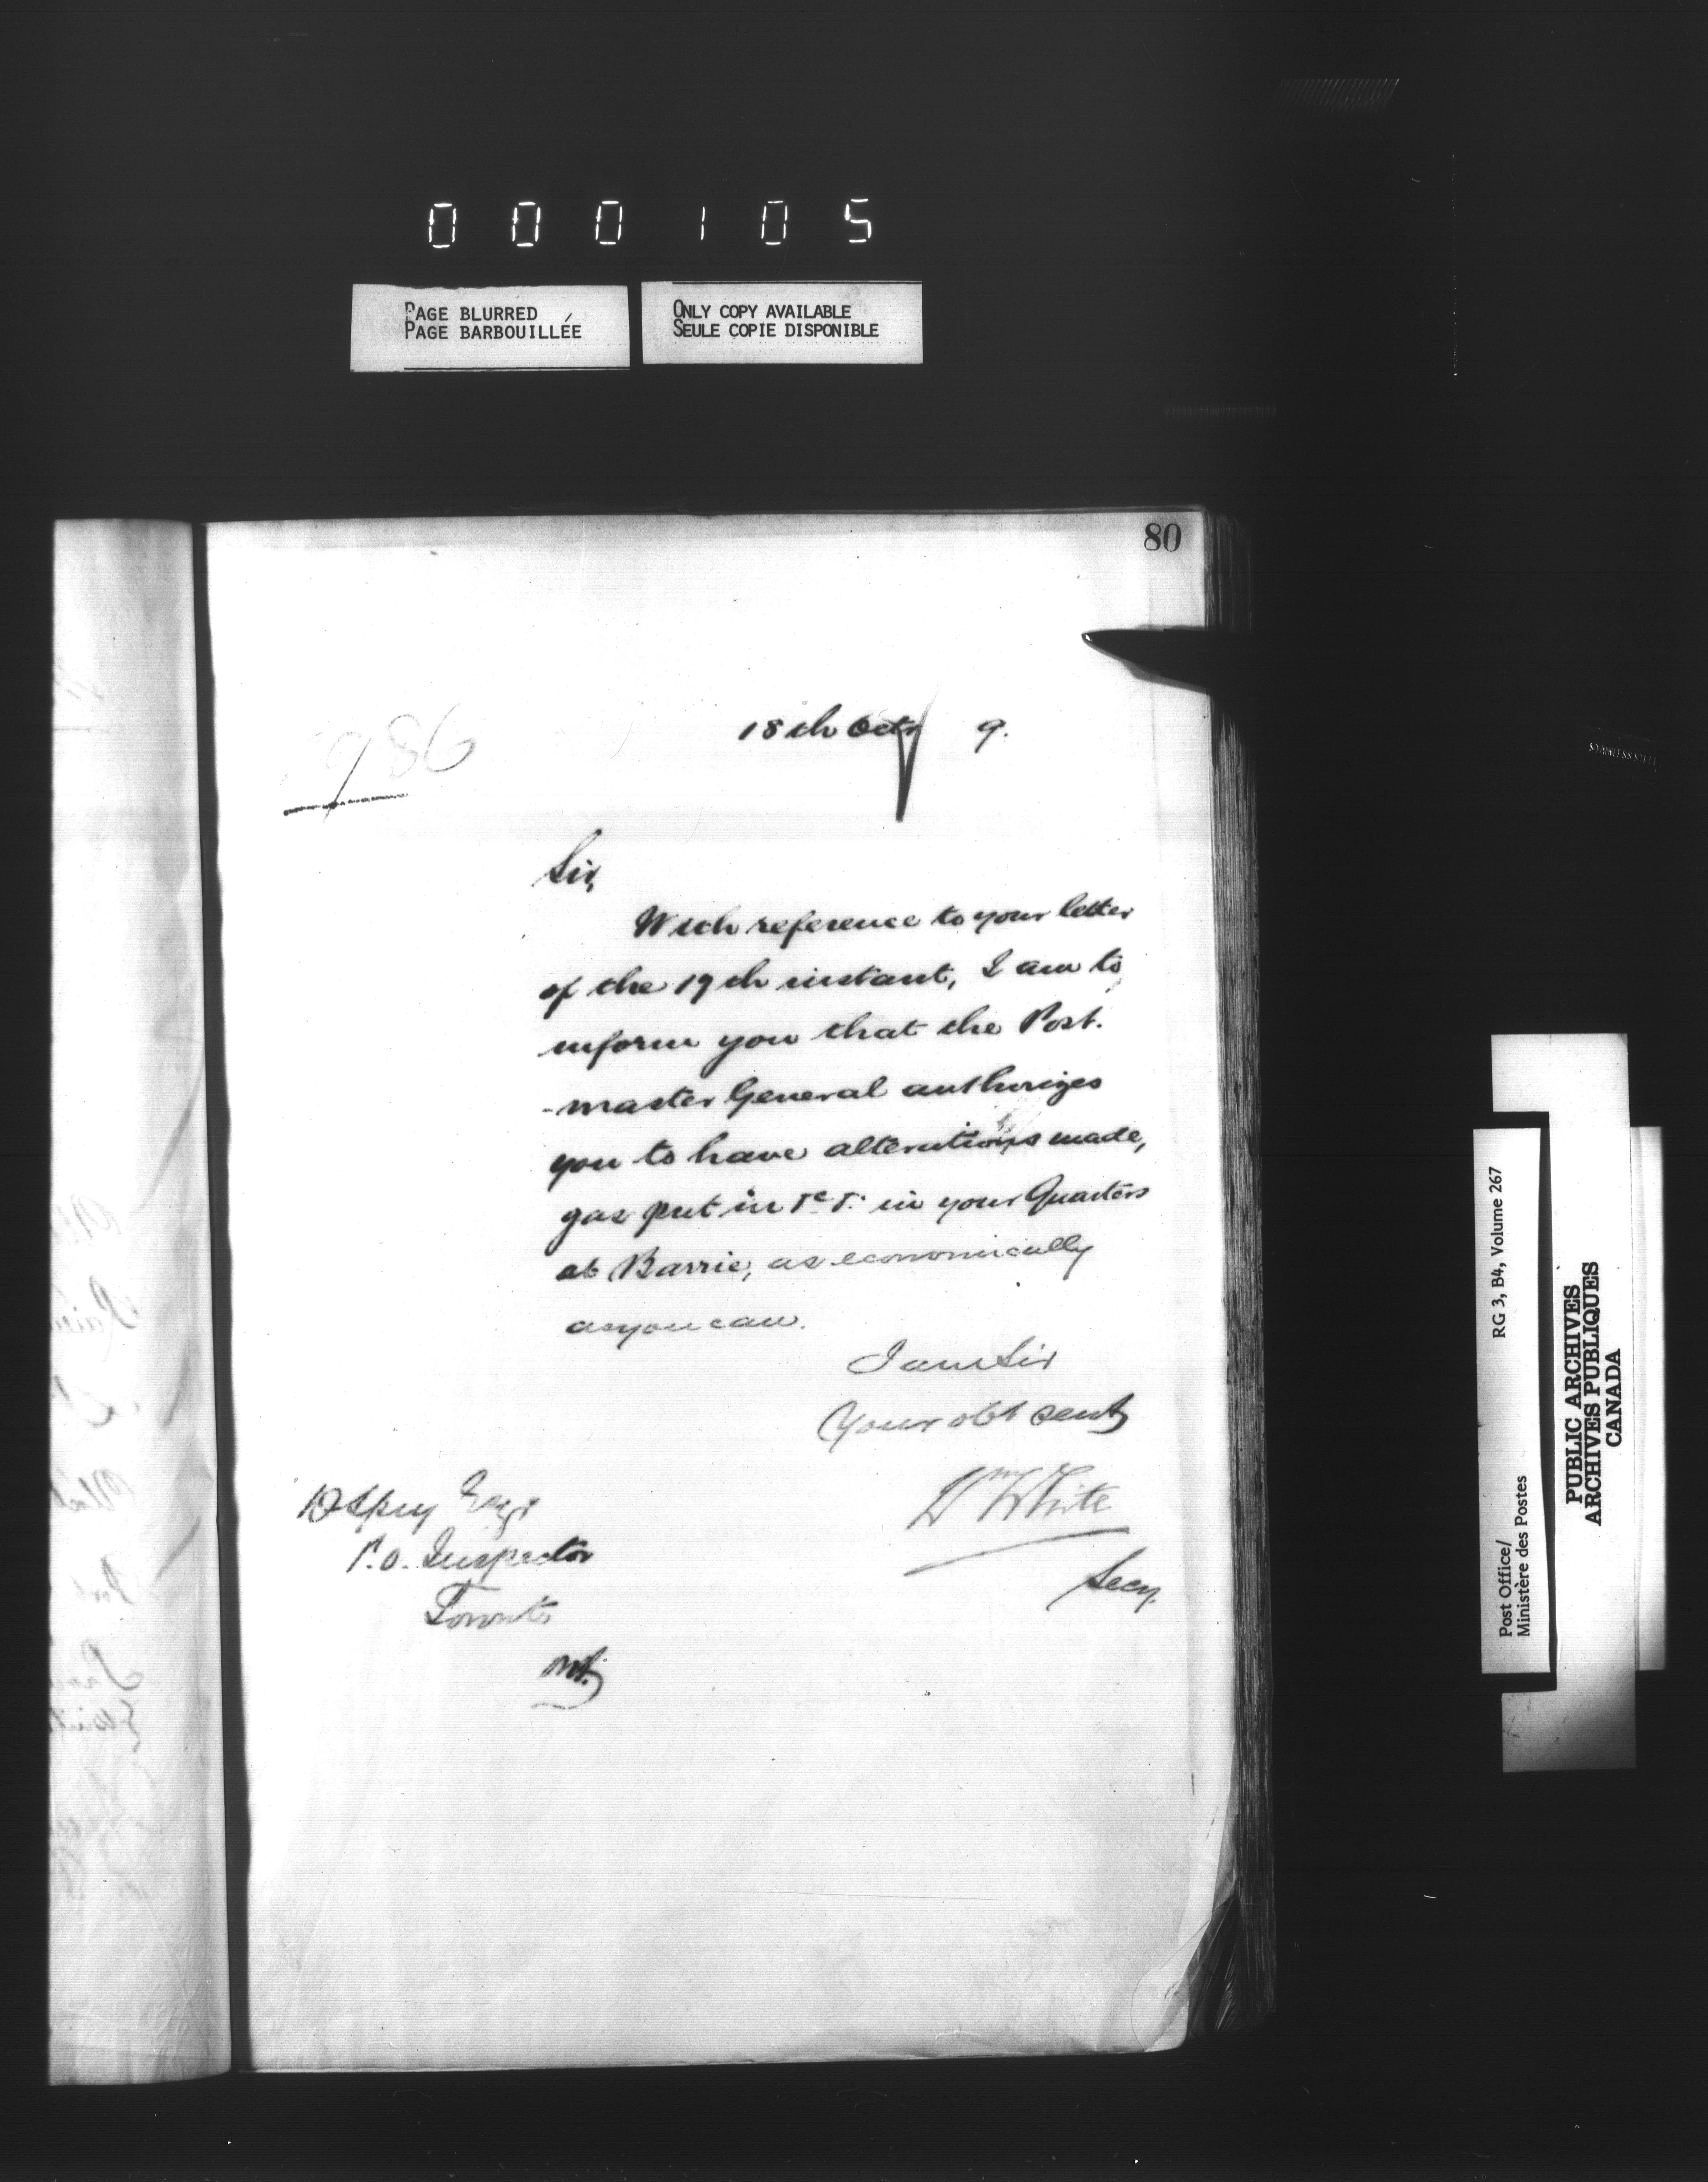 000105
PAGE BLURRED
PAGE BARBOUILLÉE
ONLY COPY AVAILABLE
SEULE COPIE DISPONIBLE
80
986
18th Octr 9.
Sir,
With reference to your letter
of the 17th instant, I am to
inform you that the Post-
-master General authorizes
you to have alterations made,
gas put in &c &. in your Quarters
at Barrie, as economically
as you can.
I am Sir
Your obt Servt
Wm White
Secy.
D Spry Esqr
P.O. Inspector
Toronto
Post Office/
Ministère des Postes
RG 3, B4, Volume 267
PUBLIC ARCHIVES
ARCHIVES PUBLIQUES
CANADA